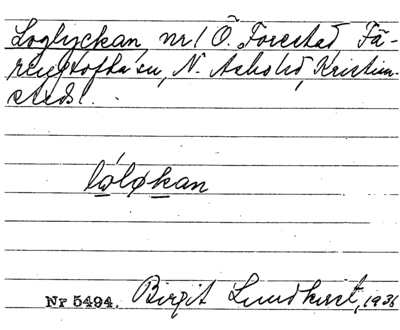 Loglyckan, nr 1 Ö. Forestad, Fä-
rengtofta sn, N. Åsbo hd, Kristian-
stads l.
lólǫkan
Nr 5494. Birgit Lundkvist, 1936